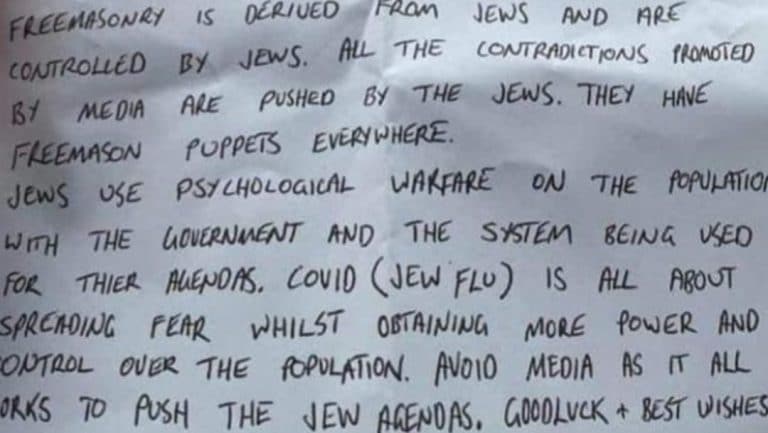 FREEMASONRY IS DERIVED FROM JEWS AND ARE
CONTROLLED BY JEWS. ALL THE CONTRADICTIONS PROMOTED
BY MEDIA ARE PUSHED BY THE JEWS. THEY HAVE
FREEMASON PUPPETS EVERYWHERE.
JEWS USE PSYCHOLOGICAL WARFARE ON THE POPULATIO
WITH THE GOVERNMENT AND THE SYSTEM BEING USED
FOR THIER AGENDAS. COVID (JEW FLU) IS ALL ABOUT
SPREADING FEAR WHILST OBTAINING MORE POWER AND
ONTROL OVER THE POPULATION. AVOID MEDIA AS IT ALL
ORKS TO PUSH THE JEW AGENDAS. GOODLUCK + BEST WISHES